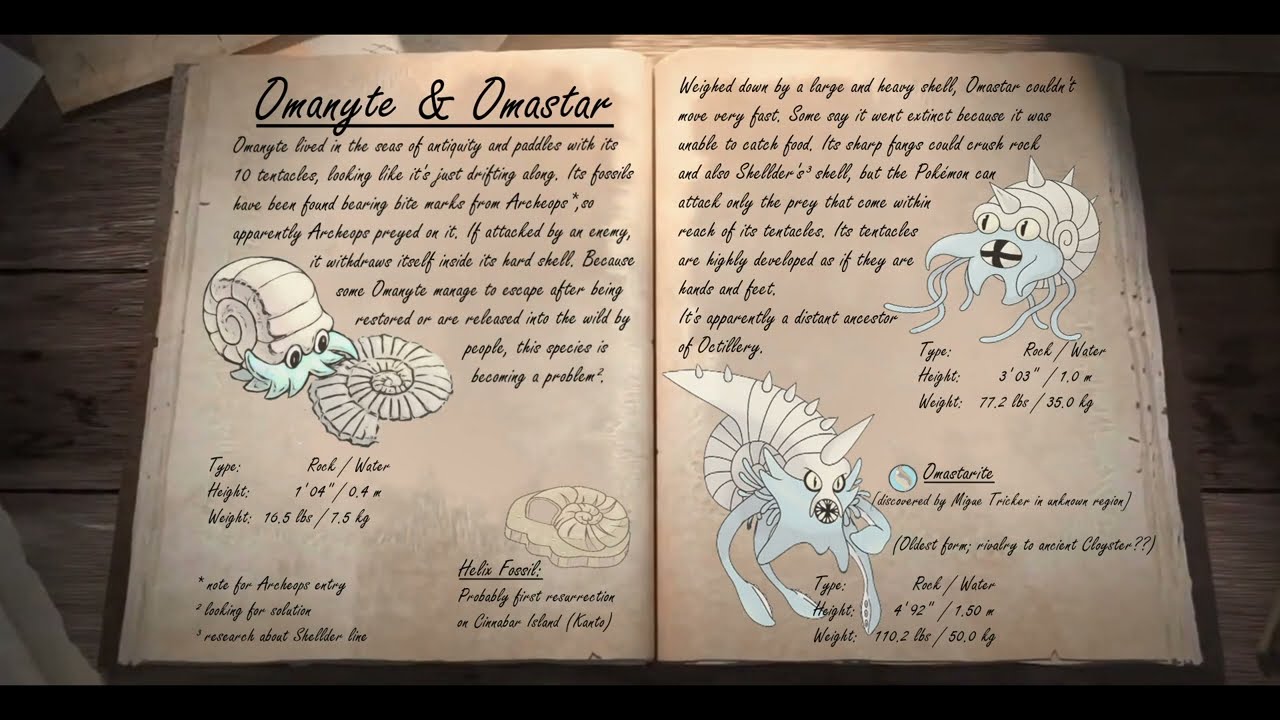 Omanyte & Omastar
Omanyte lived in the seas of antiquity and paddles with its
10 tentacles, looking like it's just drifting along. Its fossils
have been found bearing bite marks from Archeops*,so
apparently Archeops preyed on it. If attacked by an enemy,
it withdraws itself inside its hard shell. Because
some Omanyte manage to escape after being
restored or are released into the wild by
people, this species is
becoming a problem².
Type: Rock / Water
Height: 1'04" / 0.4 m
Weight: 16.5 lbs / 7.5 kg
* note for Archeops entry
² looking for solution
³ research about Shellder line
Helix Fossil:
Probably first resurrection
on Cinnabar Island (Kanto)
Weighed down by a large and heavy shell, Omastar couldn't
move very fast. Some say it went extinct because it was
unable to catch food. Its sharp fangs could crush rock
and also Shellder's³ shell, but the Pokémon can
attack only the prey that come within
reach of its tentacles. Its tentacles
are highly developed as if they are
hands and feet.
It's apparently a distant ancestor
of Octillery.
Type: Rock / Water
Height: 3'03" / 1.0 m
Weight: 77.2 lbs / 35.0 kg
Omastarite
(discovered by Migue Tricker in unknown region)
(Oldest form; rivalry to ancient Cloyster??)
Type: Rock / Water
Height: 4'92" / 1.50 m
Weight: 110.2 lbs / 50.0 kg